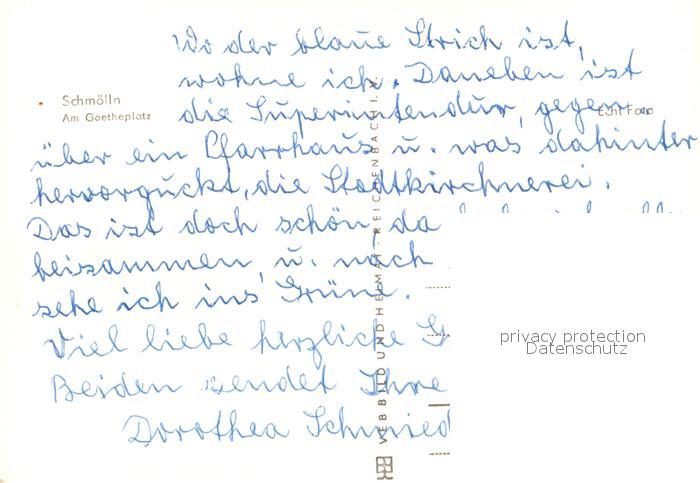 Wo der blaue Strich ist,
wohne ich. Daneben ist
Schmölln
Am Goetheplatz
die Superintendur, gegen-
Echt Foto
über ein Pfarrhaus u. was dahinter
hervorguckt, die Stadtkirchnerei.
Das ist doch schön, da
beisammen, u. nach
sehe ich ins Grüne.
Viel liebe herzliche G
Beiden sendet Ihre
Dorothea Schmied
VEB BILD UND HEIMAT REICHENBACH I. V.
privacy protection
Datenschutz